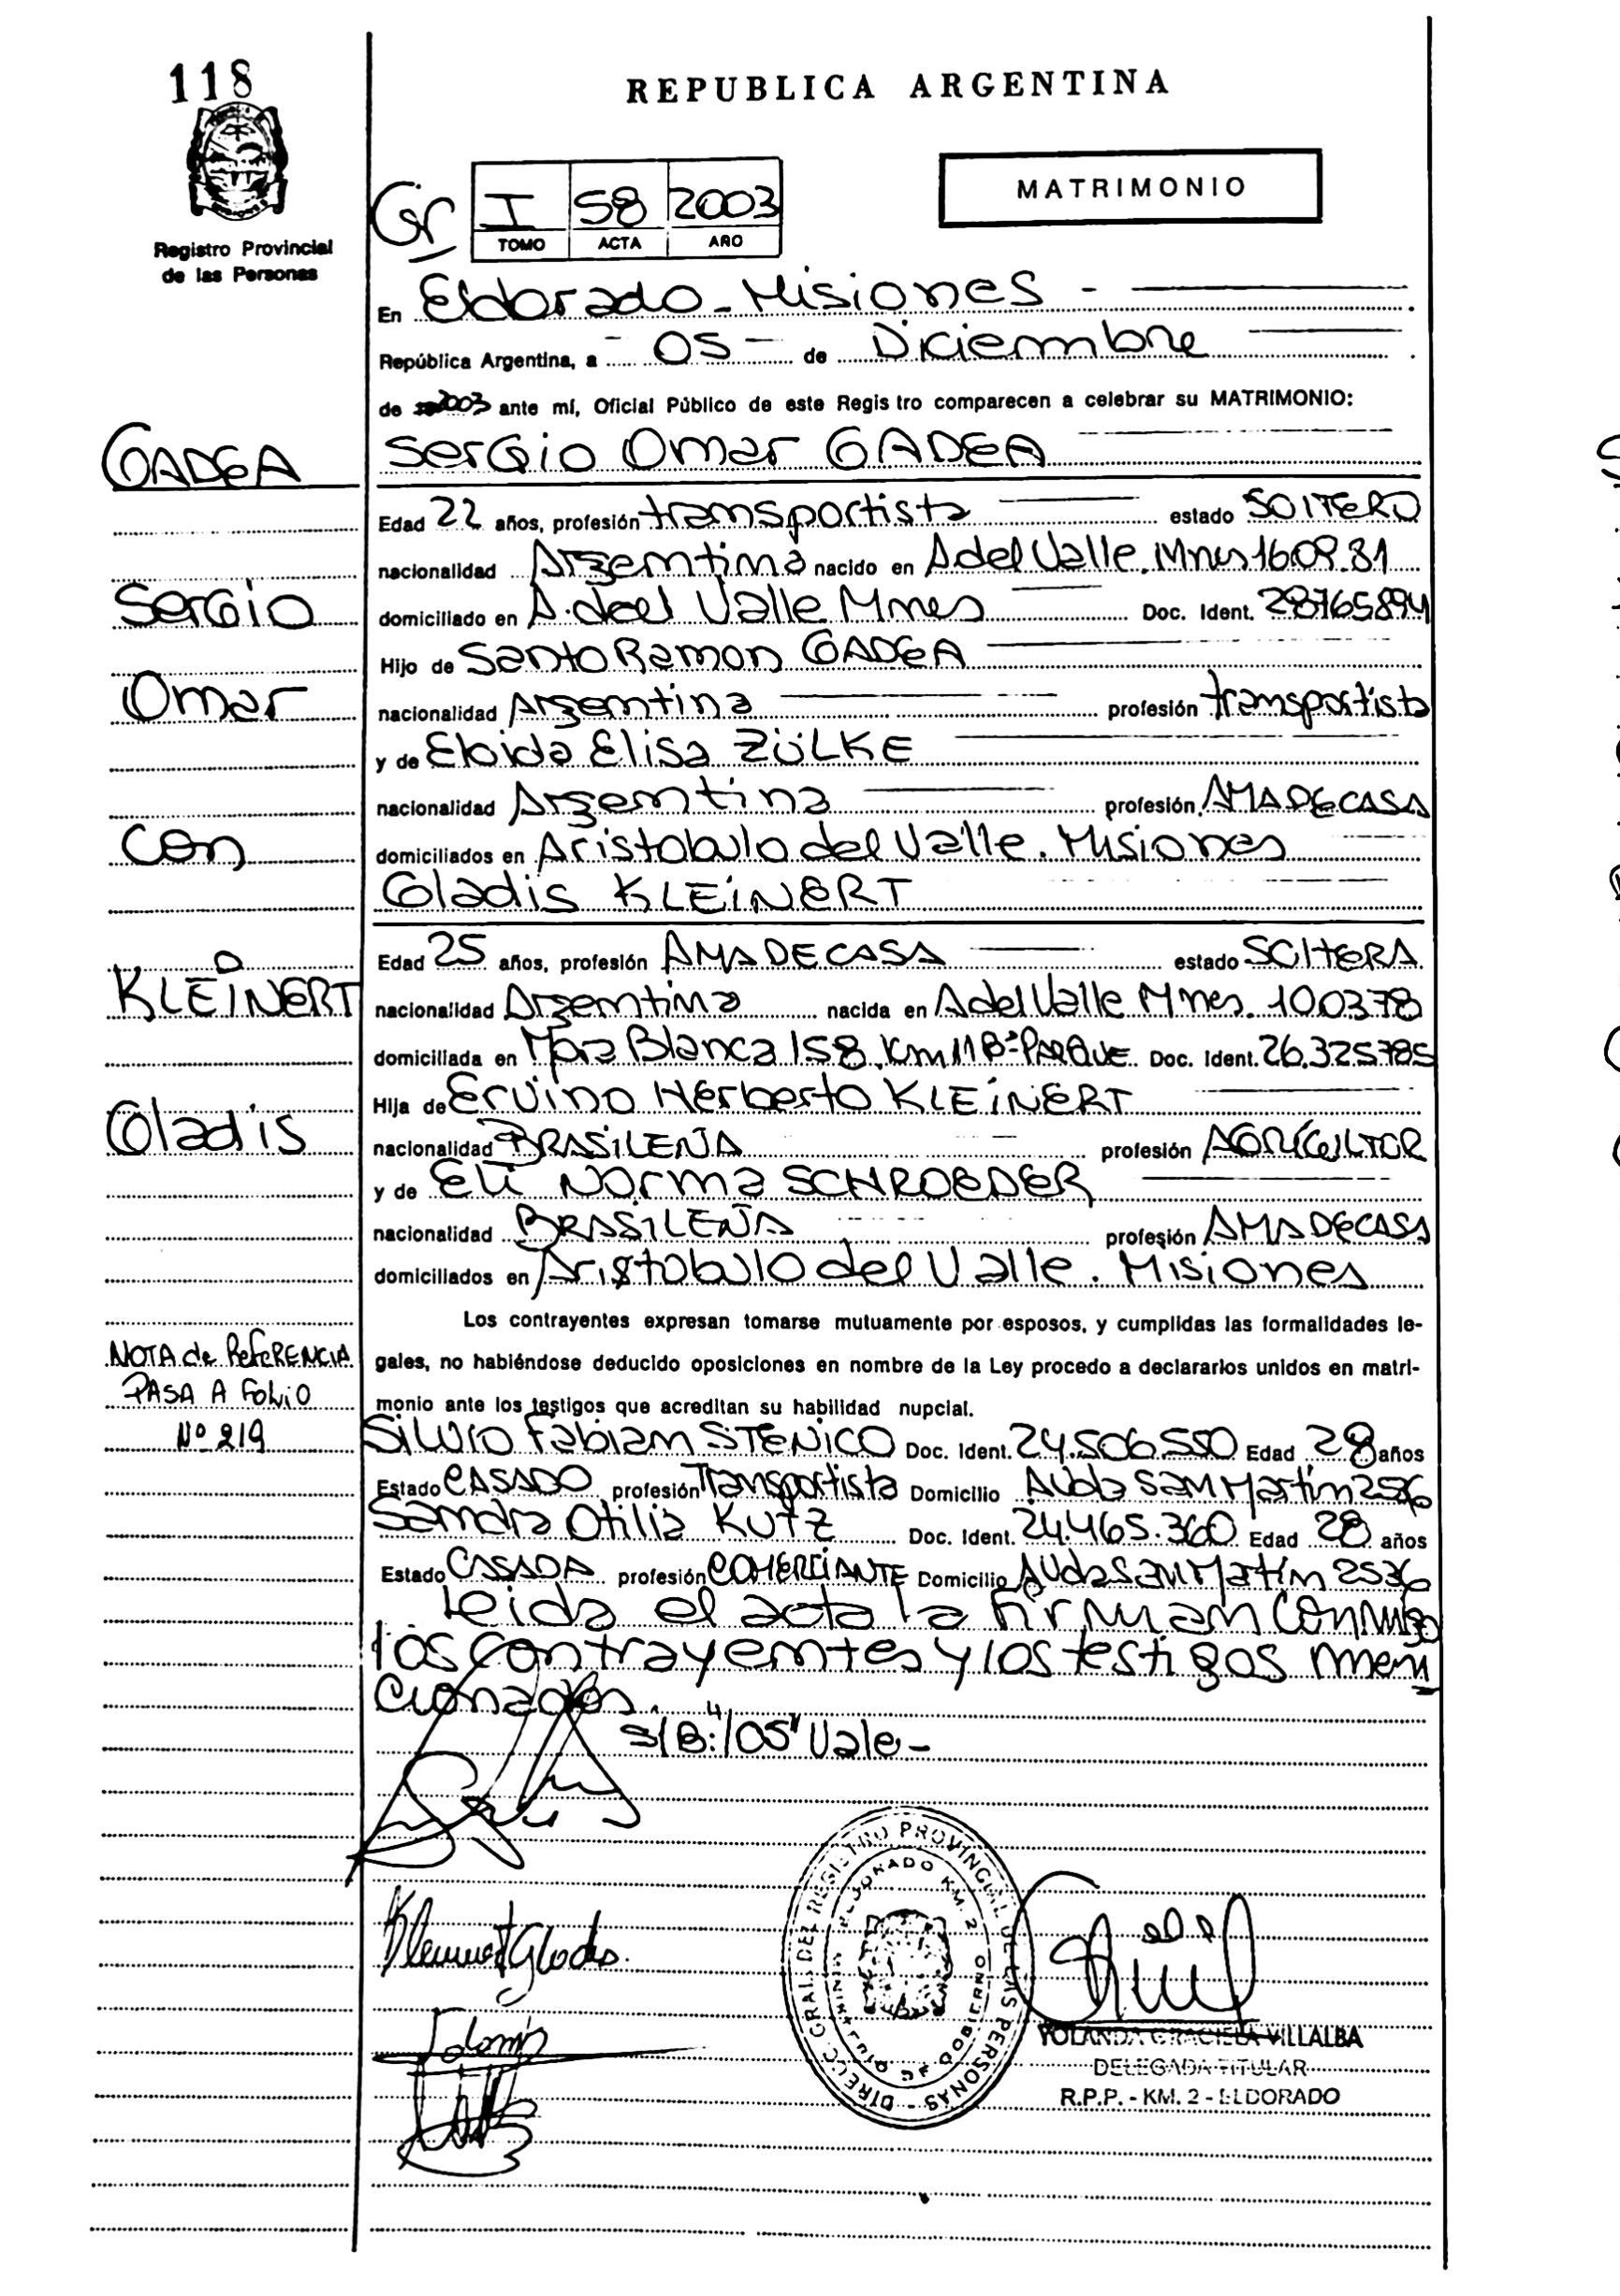 118
REPUBLICA ARGENTINA
MATRIMONIO
I 58 2003
TOMO ACTA AÑO
Registro Provincial
de las Personas
En Eldorado - Misiones -
República Argentina, a - 05 - de Diciembre
de 2003 ante mí, Oficial Público de este Regis tro comparecen a celebrar su MATRIMONIO:
GADEA
Sergio Omar GADEA
Edad 22 años, profesión transportista estado SOLTERO
nacionalidad Argentina nacido en A del Valle. Mnes 16.09.81
Sergio
domiciliado en A. del Valle Mnes Doc. Ident. 28765894
Hijo de Santo Ramon GADEA
Omar
nacionalidad Argentina profesión transportista
y de Elida Elisa ZÜLKE
nacionalidad Argentina profesión AMA DE CASA
con
domiciliados en Aristobulo del Valle. Misiones
Gladis KLEINERT
Edad 25 años, profesión AMA DE CASA estado SOLTERA
KLEINERT
nacionalidad Argentina nacida en A del Valle Mnes. 10.03.78
domiciliada en Blanca 158 Km 11 Bº PARQUE Doc. Ident. 26.325785
Hija de Ervino Herberto KLEINERT
Gladis
nacionalidad BRASILEÑA profesión AGRICULTOR
y de Eli Norma SCHROEDER
nacionalidad BRASILEÑA profesión AMA DE CASA
domiciliados en Aristobulo del Valle. Misiones
Los contrayentes expresan tomarse mutuamente por esposos, y cumplidas las formalidades le-
gales, no habiéndose deducido oposiciones en nombre de la Ley procedo a declararlos unidos en matri-
monio ante los testigos que acreditan su habilidad nupcial.
NOTA de REFERENCIA
PASA A FOLIO
Nº 219
Silvio Fabian STENICO Doc. Ident. 24.506.550 Edad 28 años
Estado CASADO profesión Transportista Domicilio Avda San Martin 2536
Sandra Otilia KUTZ Doc. Ident. 24.465.360 Edad 28 años
Estado CASADA profesión COMERCIANTE Domicilio Avda San Martin 2536
Leida el acta la firman conmigo
los contrayentes y los testigos men
cionados.
S/B: "/05" Vale -
Kleinert Gladis
DIRECC. GRAL. DEL REGISTRO PROVINCIAL DE LAS PERSONAS
ELDORADO KM. 2
MINISTERIO DE GOBIERNO
YOLANDA GRACIELA VILLALBA
DELEGADA TITULAR
R.P.P. - KM. 2 - ELDORADO